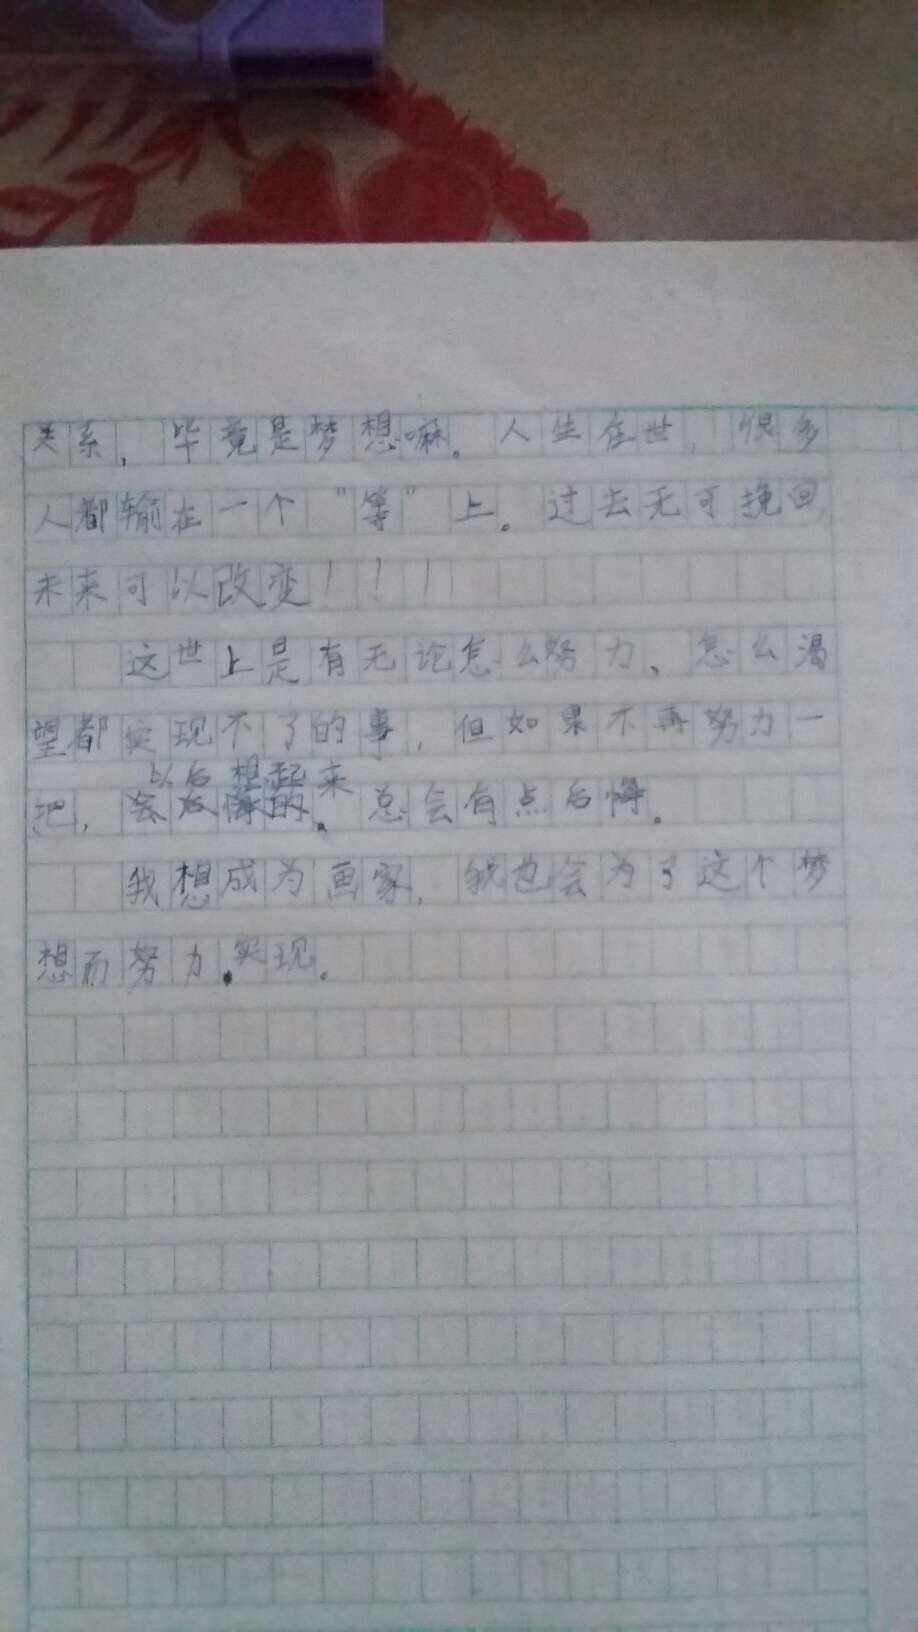 关系，毕竟是梦想嘛。人生在世，很多
人都输在一个“等”上。过去无可挽回
未来可以改变！！！
这世上是有无论怎么努力、怎么渴
望都实现不了的事，但如果不再努力一
以后想起来
把，会后悔的。总会有点后悔。
我想成为画家，我也会为了这个梦
想而努力.实现。